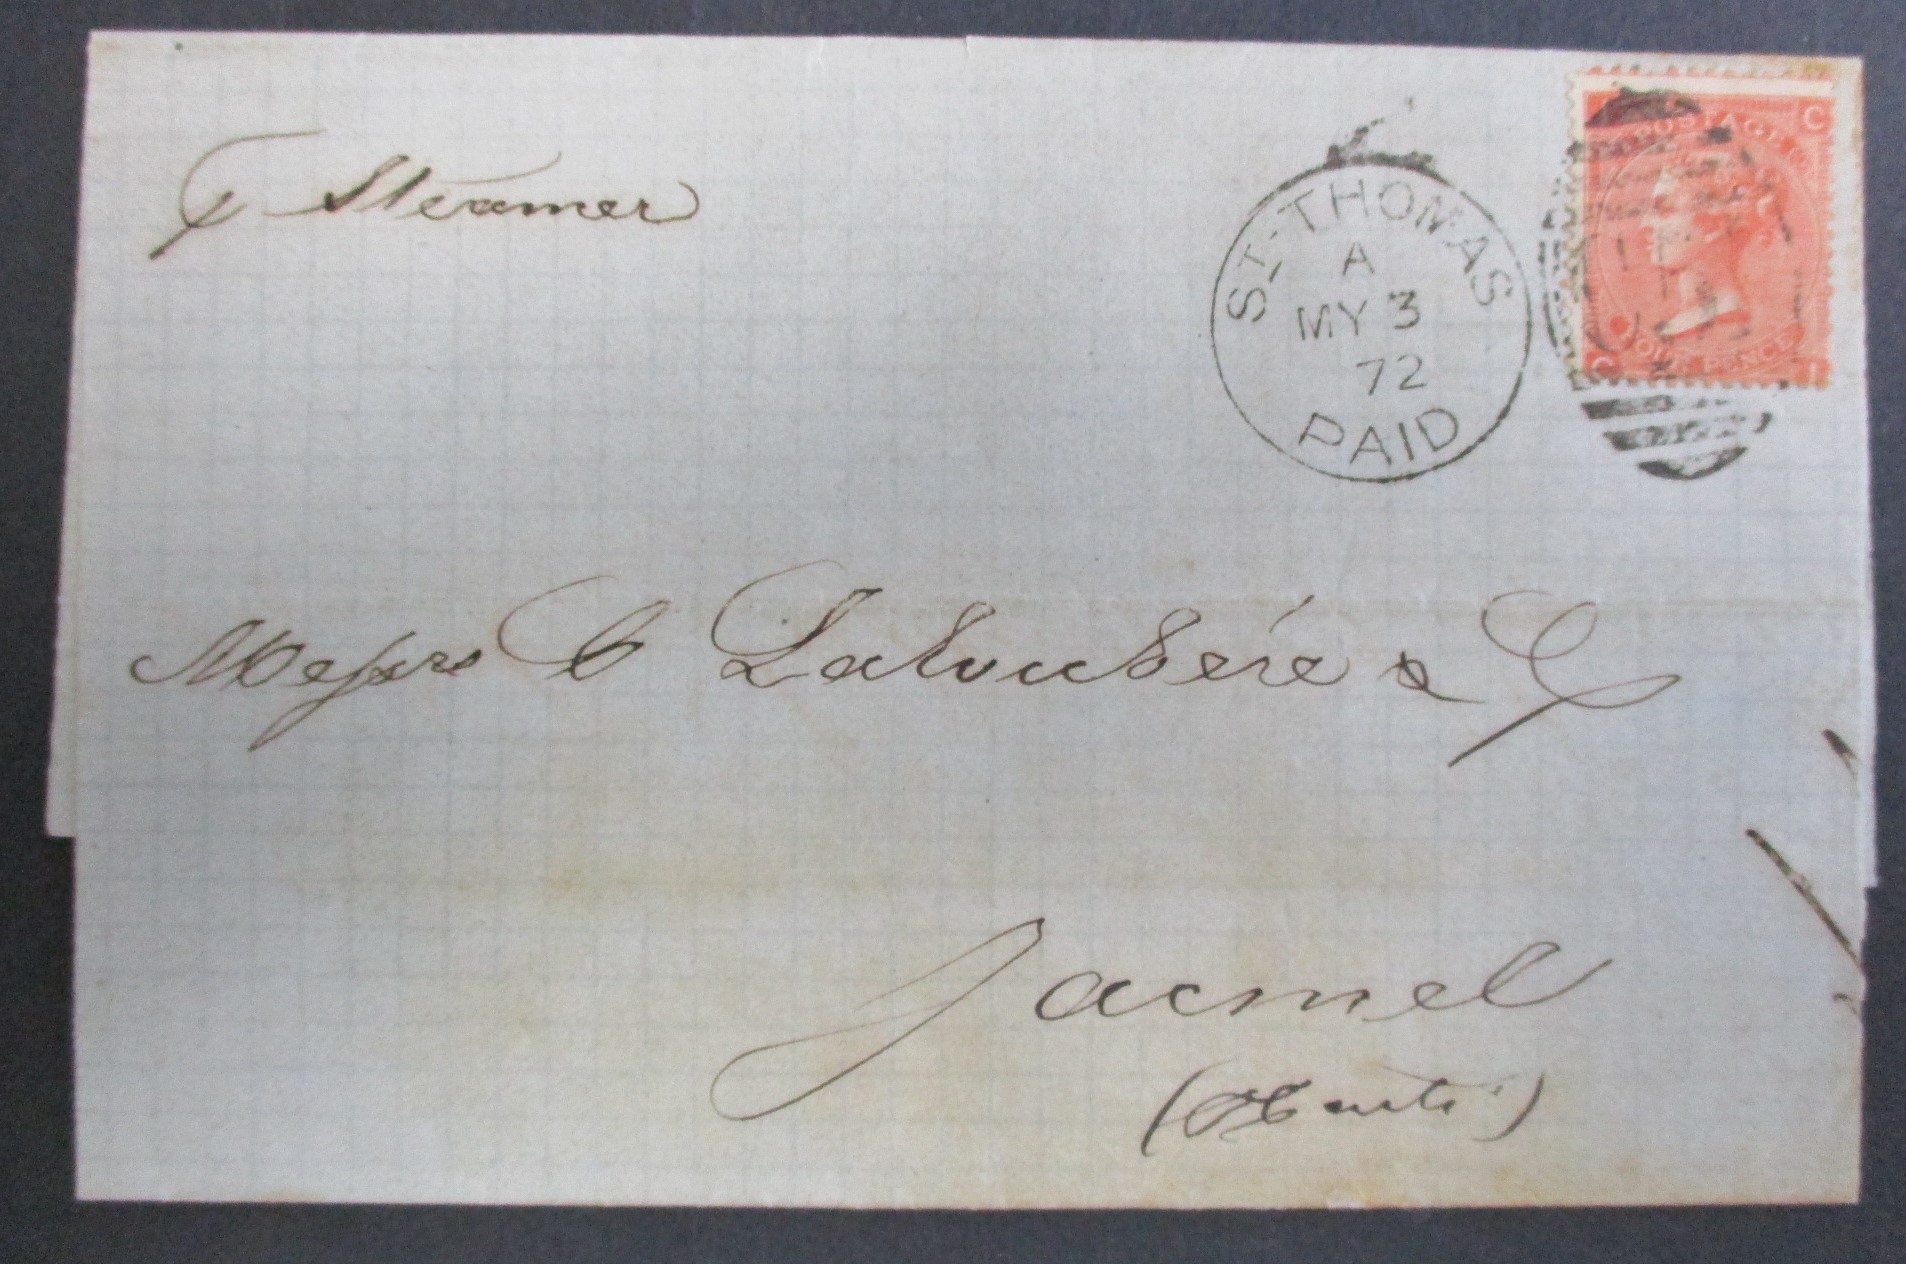 p Steamer
ST. THOMAS
A
MY 3
72
PAID
C
POSTAGE
FOUR PENCE
C I
Messrs C Laloubère & Co
Jacmel
(Haiti)